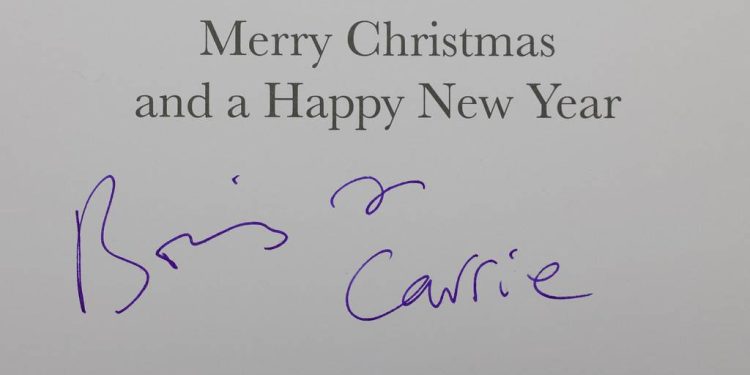 Merry Christmas
and a Happy New Year
Boris &
Carrie